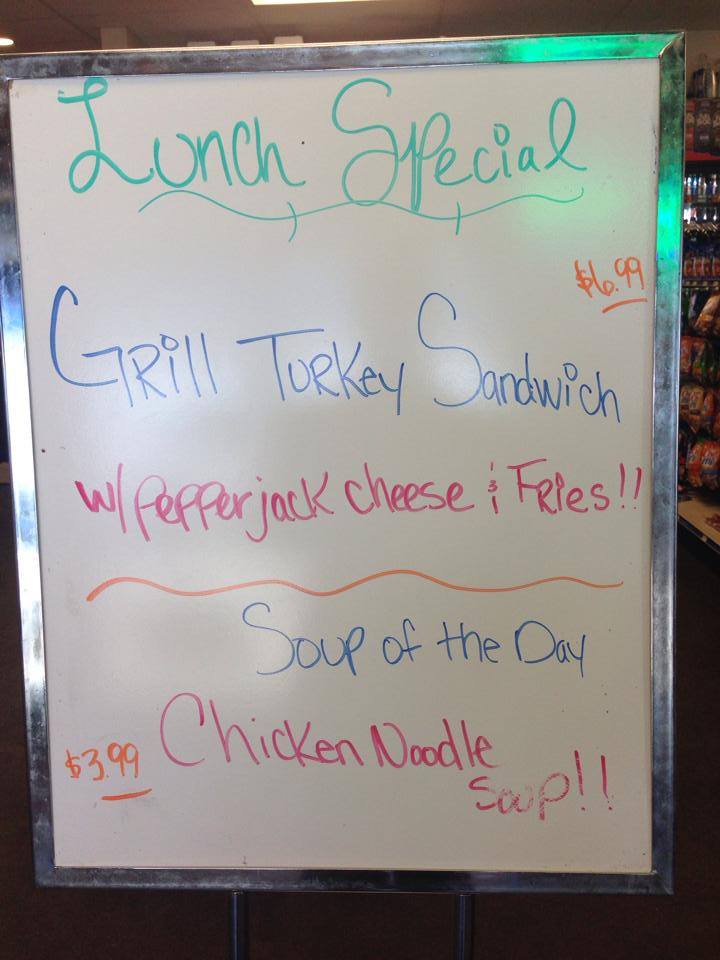 Lunch Special
$6.99
Grill Turkey Sandwich
w/ Pepper jack cheese & Fries!!
Soup of the Day
Chicken Noodle
$3.99
Soup!!